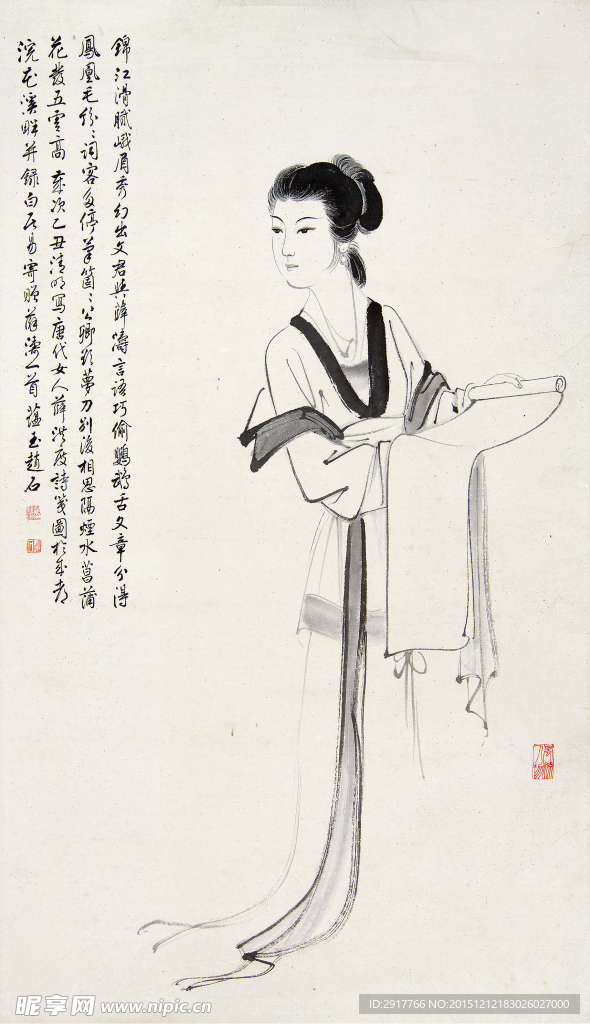 錦江滑膩峨眉秀幻出文君與薛濤言語巧偷鸚鵡舌文章分得
鳳凰毛紛〻詞客多停筆箇〻公卿欲夢刀別後相思隔煙水菖蒲
花發五雲高 歲次乙丑清明寫唐代女人薛洪度詩箋圖於成都
浣花溪畔并錄白居易寄贈薛濤一首 蘊玉趙石
昵享网 www.nipic.cn
ID:2917766 NO:20151212183026027000